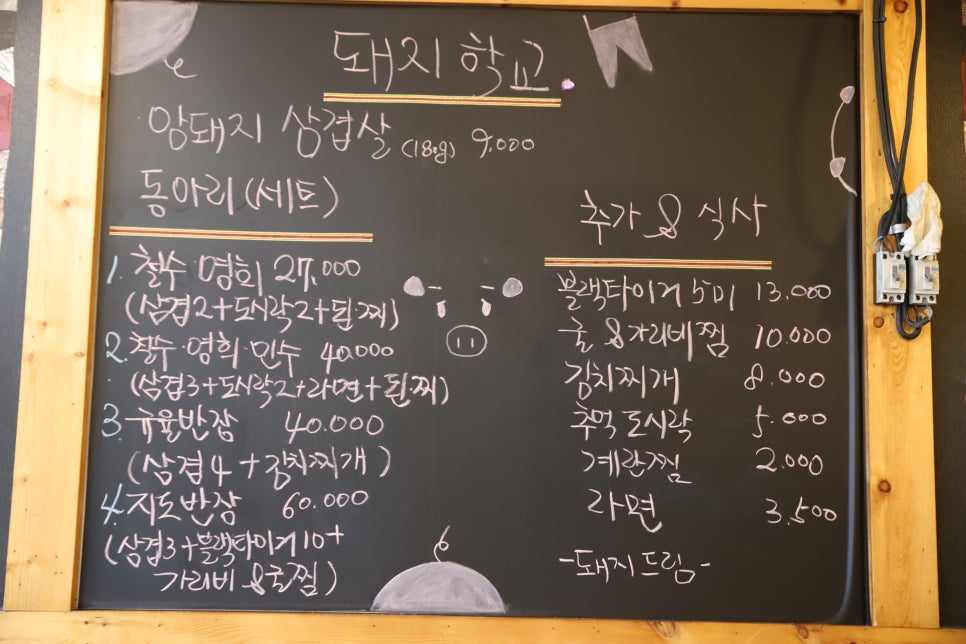 돼지학교
암돼지 삼겹살 (180g) 9,000
동아리(세트)
1. 철수·영희 27,000
(삼겹2+도시락2+된·찌)
2. 철수·영희·민수 40,000
(삼겹3+도시락2+라면+된·찌)
3. 규율반장 40.000
(삼겹4+김치찌개)
4. 지도반장 60.000
(삼겹3+블랙타이거10+
가리비&굴찜)
추가 & 식사
블랙타이거 5미 13.000
굴&가리비찜 10.000
김치찌개 8.000
추억 도시락 5.000
계란찜 2.000
라면 3.500
-돼지드림-